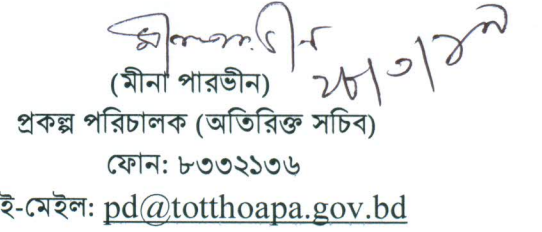 মীনা পারভীন ২৮/৩/১৯
(মীনা পারভীন)
প্রকল্প পরিচালক (অতিরিক্ত সচিব)
ফোন: ৮৩৩২১৩৬
ই-মেইল: pd@totthoapa.gov.bd